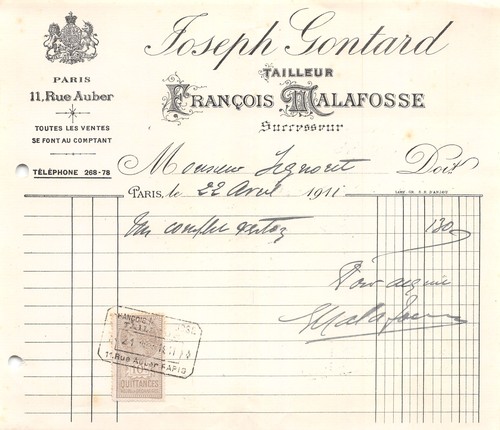 Joseph Gontard
TAILLEUR
FRANÇOIS MALAFOSSE
Successeur
PARIS
11, Rue Auber
TOUTES LES VENTES
SE FONT AU COMPTANT
TÉLÉPHONE 268-78
Monsieur Doit
PARIS, le 22 Avril 1911
Un complet 130
Pour acquit
Malafosse
11, Rue Auber PARIS
QUITTANCES